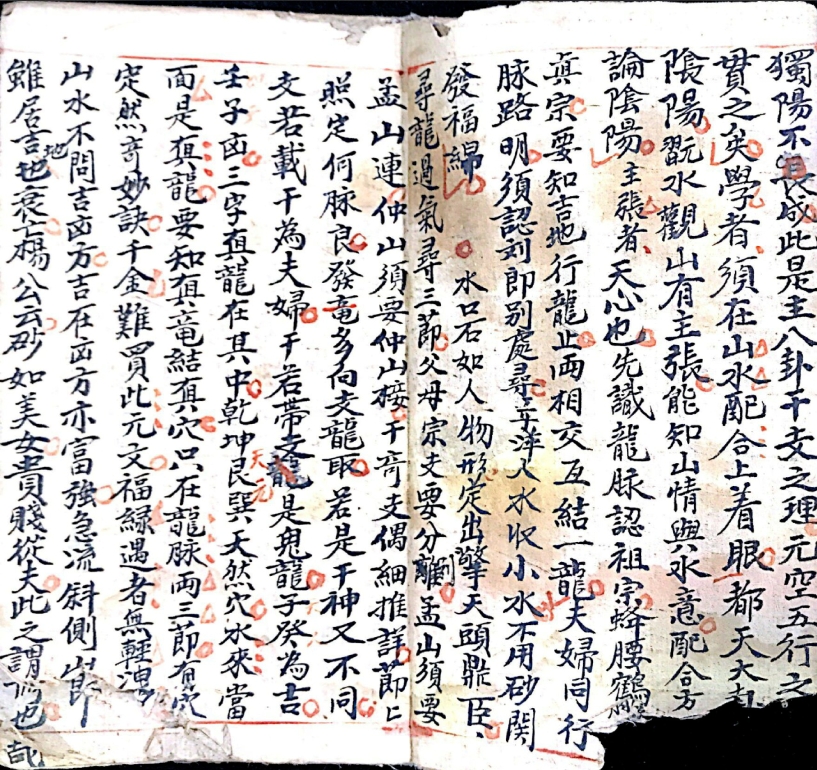 獨陽不長成此是主八卦干支之理元空五行之
貫之矣學者須在山水配合上着眼都天大卦
陰陽翫水觀山有主張能知山情與水意配合方
論陰陽主張者天心也先識龍脉認祖宗蜂腰鶴
真宗要知吉地行龍止両相交互結一龍夫婦同行
脉路明須認刘郎别處尋平洋大水收小水不用砂関
發福綿水口石如人物形定出擎天頭鼎臣
尋龍過氣尋三莭父母宗支要分離孟山須要
孟山連仲山須要仲山接干竒支偶細推詳莭上
照定何脉良發竜多向支龍取若是干神又不同
支若載干為夫婦干若帶支龍是鬼龍子癸為吉
壬子凶三字真龍在其中乾坤艮巽天然穴水來當天元
面是真龍要知真竜結真穴只在龍脉両三節有穴
定然竒妙訣千金難買此元文福緑遇者無輕洩
山水不問吉凶方吉在凶方亦富強急流斜側山即
雖居吉地衰亡楊公云砂如美女貴賤從夫此之謂也